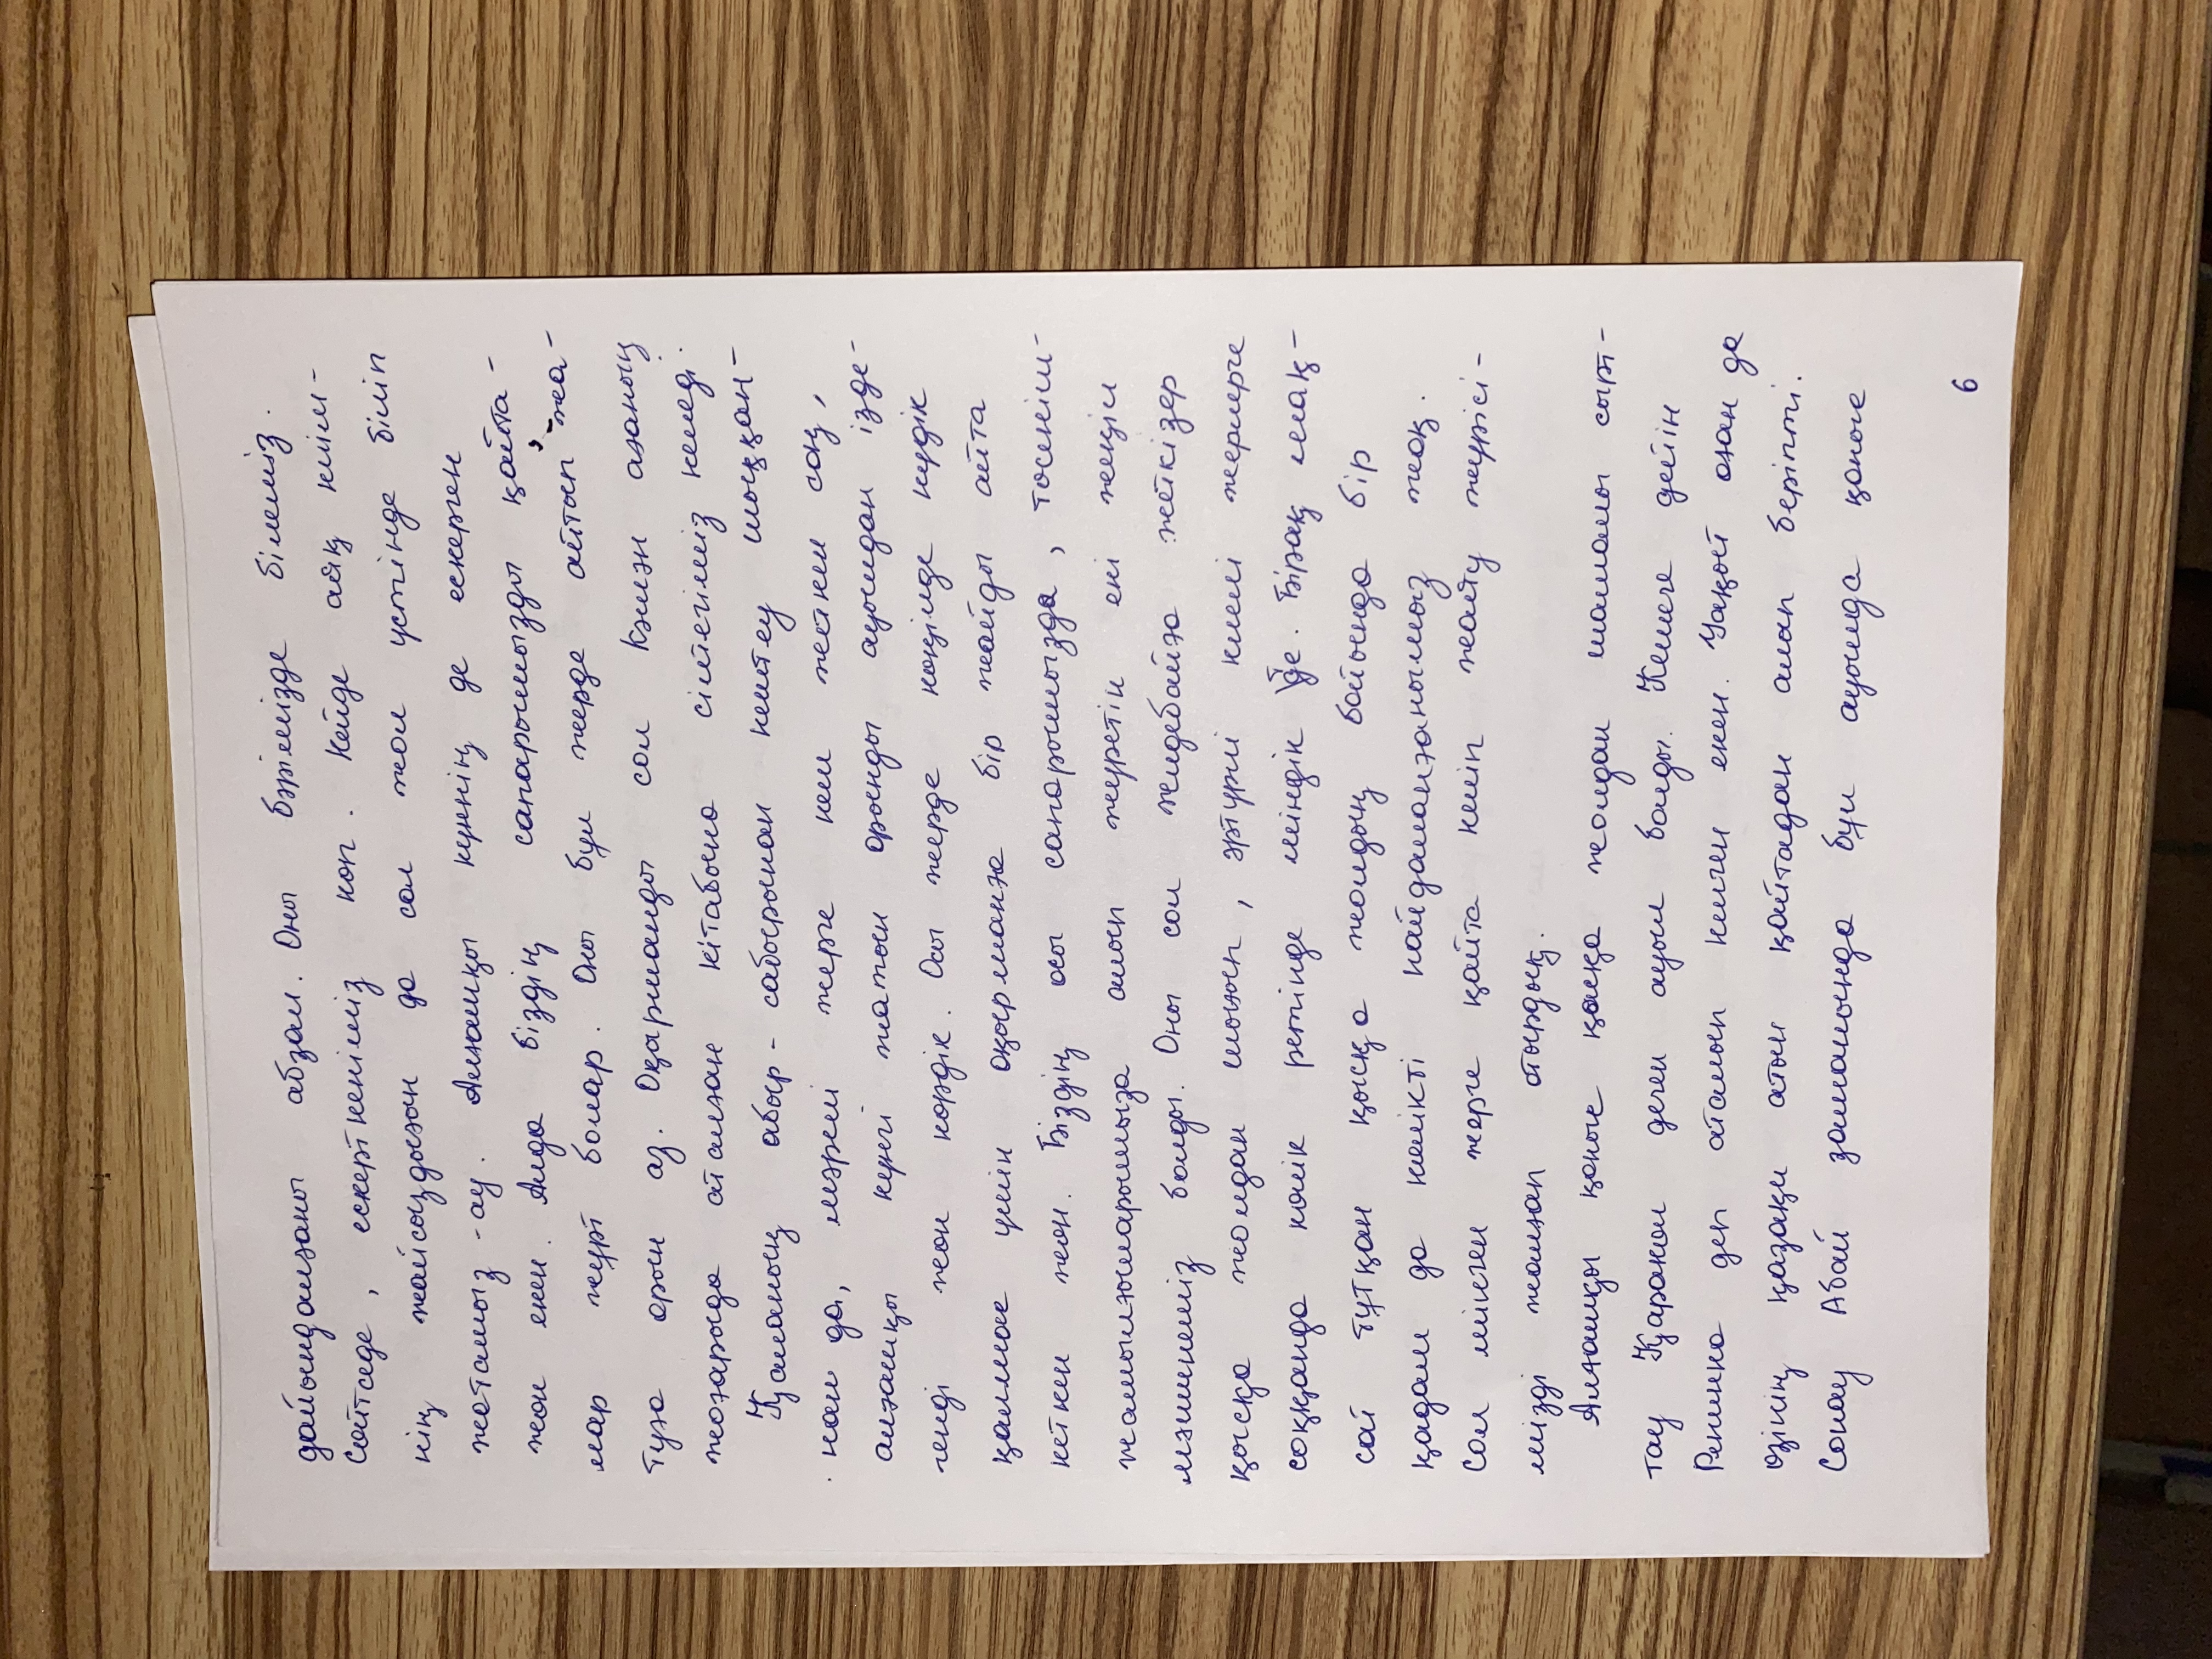 дайындалғаны абзал. Оны бәрімізде білеміз.
Сөйтседе, ескерткеніміз көп. Кейде аяқ киім-
нің жайсыздығын да сол жол үстінде біліп
жатамыз-ау. Алғашқы күннің де ескерген
жөн екен. Алда біздің сапарымызды қайта-
лар жұрт болар. Оны бұл жерде айтып жа-
туға орын аз. Оқырманды сол Кәмән ағаның
жоғарыда аталған кітабына сілтегіміз келеді.
Қаланың абыр-сабырынан кештеу шыққан-
нан да, мәрелі жерге кеш жеткен соң,
алғашқы күнгі жатын орынды ауылдан ізде-
генді жөн көрдік. Осы жерде көңілде күдік
қалмас үшін оқырманға бір жайды айта
кеткен жөн. Біздің осы сапарымызда, төсеніш-
жамылғыларымызға алып жүретін екі жеңіл
мәшинеміз болды. Оны сол Жидебайға жеткізер
қысқа жолдан шығып, әртүрлі киелі жерлерге
соққанда көлік ретінде міндік те. Бірақ мақ-
сат тұтқан қысқа жолдың бойында бір
қадам да көлікті пайдаланғанымыз жоқ.
Сол мінген жерге қайта келіп жаяу жүрісі-
мізді жалғап отырдық.
Алғашқы қоныс қасқа жолдан шамалы сырт-
тау Қаракөл деген ауыл болды. Кешеге дейін
Репинка деп аталып келген екен. Уақыт озған да
өзінің қазақи атын қайтадан алып беріпті.
Сонау Абай заманында бұл ауылда қоныс
6